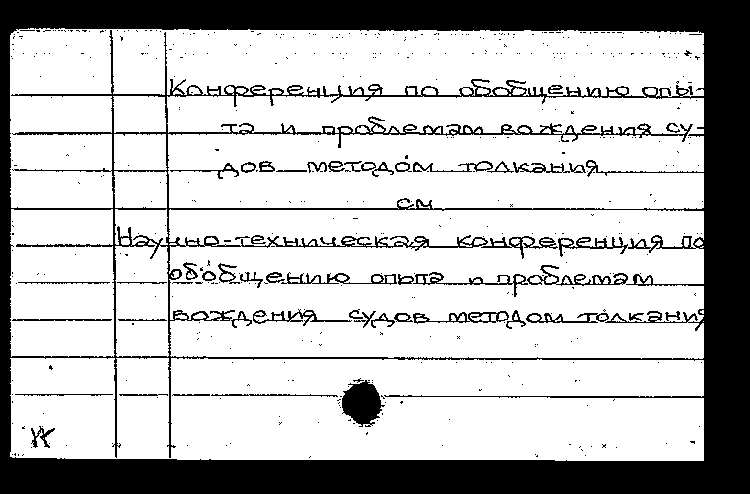 Конференция по обобщению опы-
та и проблемам вождения су-
дов методом толкания
см
Научно-техническая конференция по
обобщению опыта и проблемам
вождения судов методом толкания